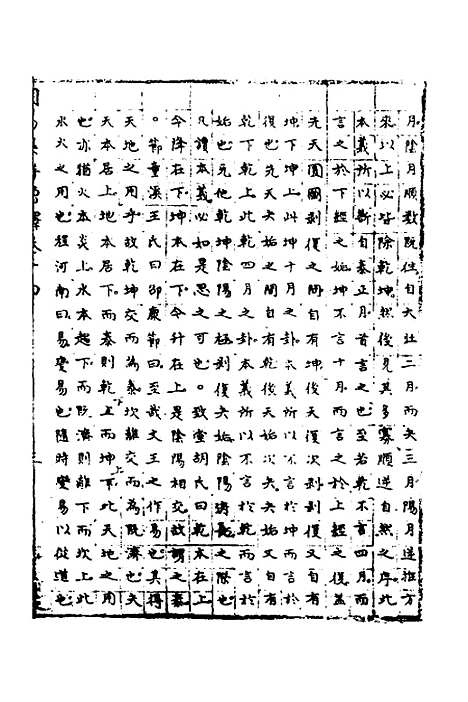 月陰月順數既往自大壯二月而夬三月陽月逆推方
來以上必皆除乾坤然後見其多寡順逆自然之序此
本義所以斷自泰正月首言之至若乾不言四月而
言之於下經之始坤不言十月而言之於上經之復蓋
先天圓圖剝復之間自有坤後天復次剝剝復又自有
坤下坤上此坤十月之卦本義所以不言於坤而言於
復也先天夬姤之間自有乾後天姤次夬夬姤又自有
乾下乾上此乾四月之卦本義所以不言於乾而言於
姤也先他乾坤陰陽之極剝復夬姤陰陽消長之際也
凡讀本義必如是思之可也。致堂胡氏曰乾本在上
今降在下坤本在下今升在上是陰陽相交故謂之泰
。節童溪王氏曰邵康節曰至哉文王之作易也其得
天地之用乎故乾坤交而為泰坎離交而為既濟也夫
天本居上地本居下而泰則乾上而坤下此天地之用
也亦猶火本炎上水本趨下而既濟則離下而坎上此
水火之用也程河南曰易變易也隨時變易以從道也